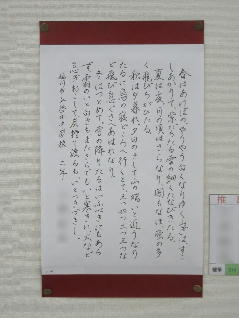 春はあけぼの。やうやう白くなりゆく山ぎは、すこ
しあかりて、紫だちたる雲の細くたなびきたる。
夏は夜。月の頃はさらなり、闇もなほ、蛍の多
く飛びちがひたる。
秋は夕暮れ。夕日のさして山の端いと近うなり
たるに、烏の寝どころへ行くとて、三つ四つ、二つ三つな
ど飛び急ぐさへあはれなり。
冬はつとめて。雪の降りたるはいふべきにもあら
ず、霜のいと白きも、またさらでも、いと寒きに、火など
急ぎおこして、炭持て渡るも、いとつきづきし。
二年
推